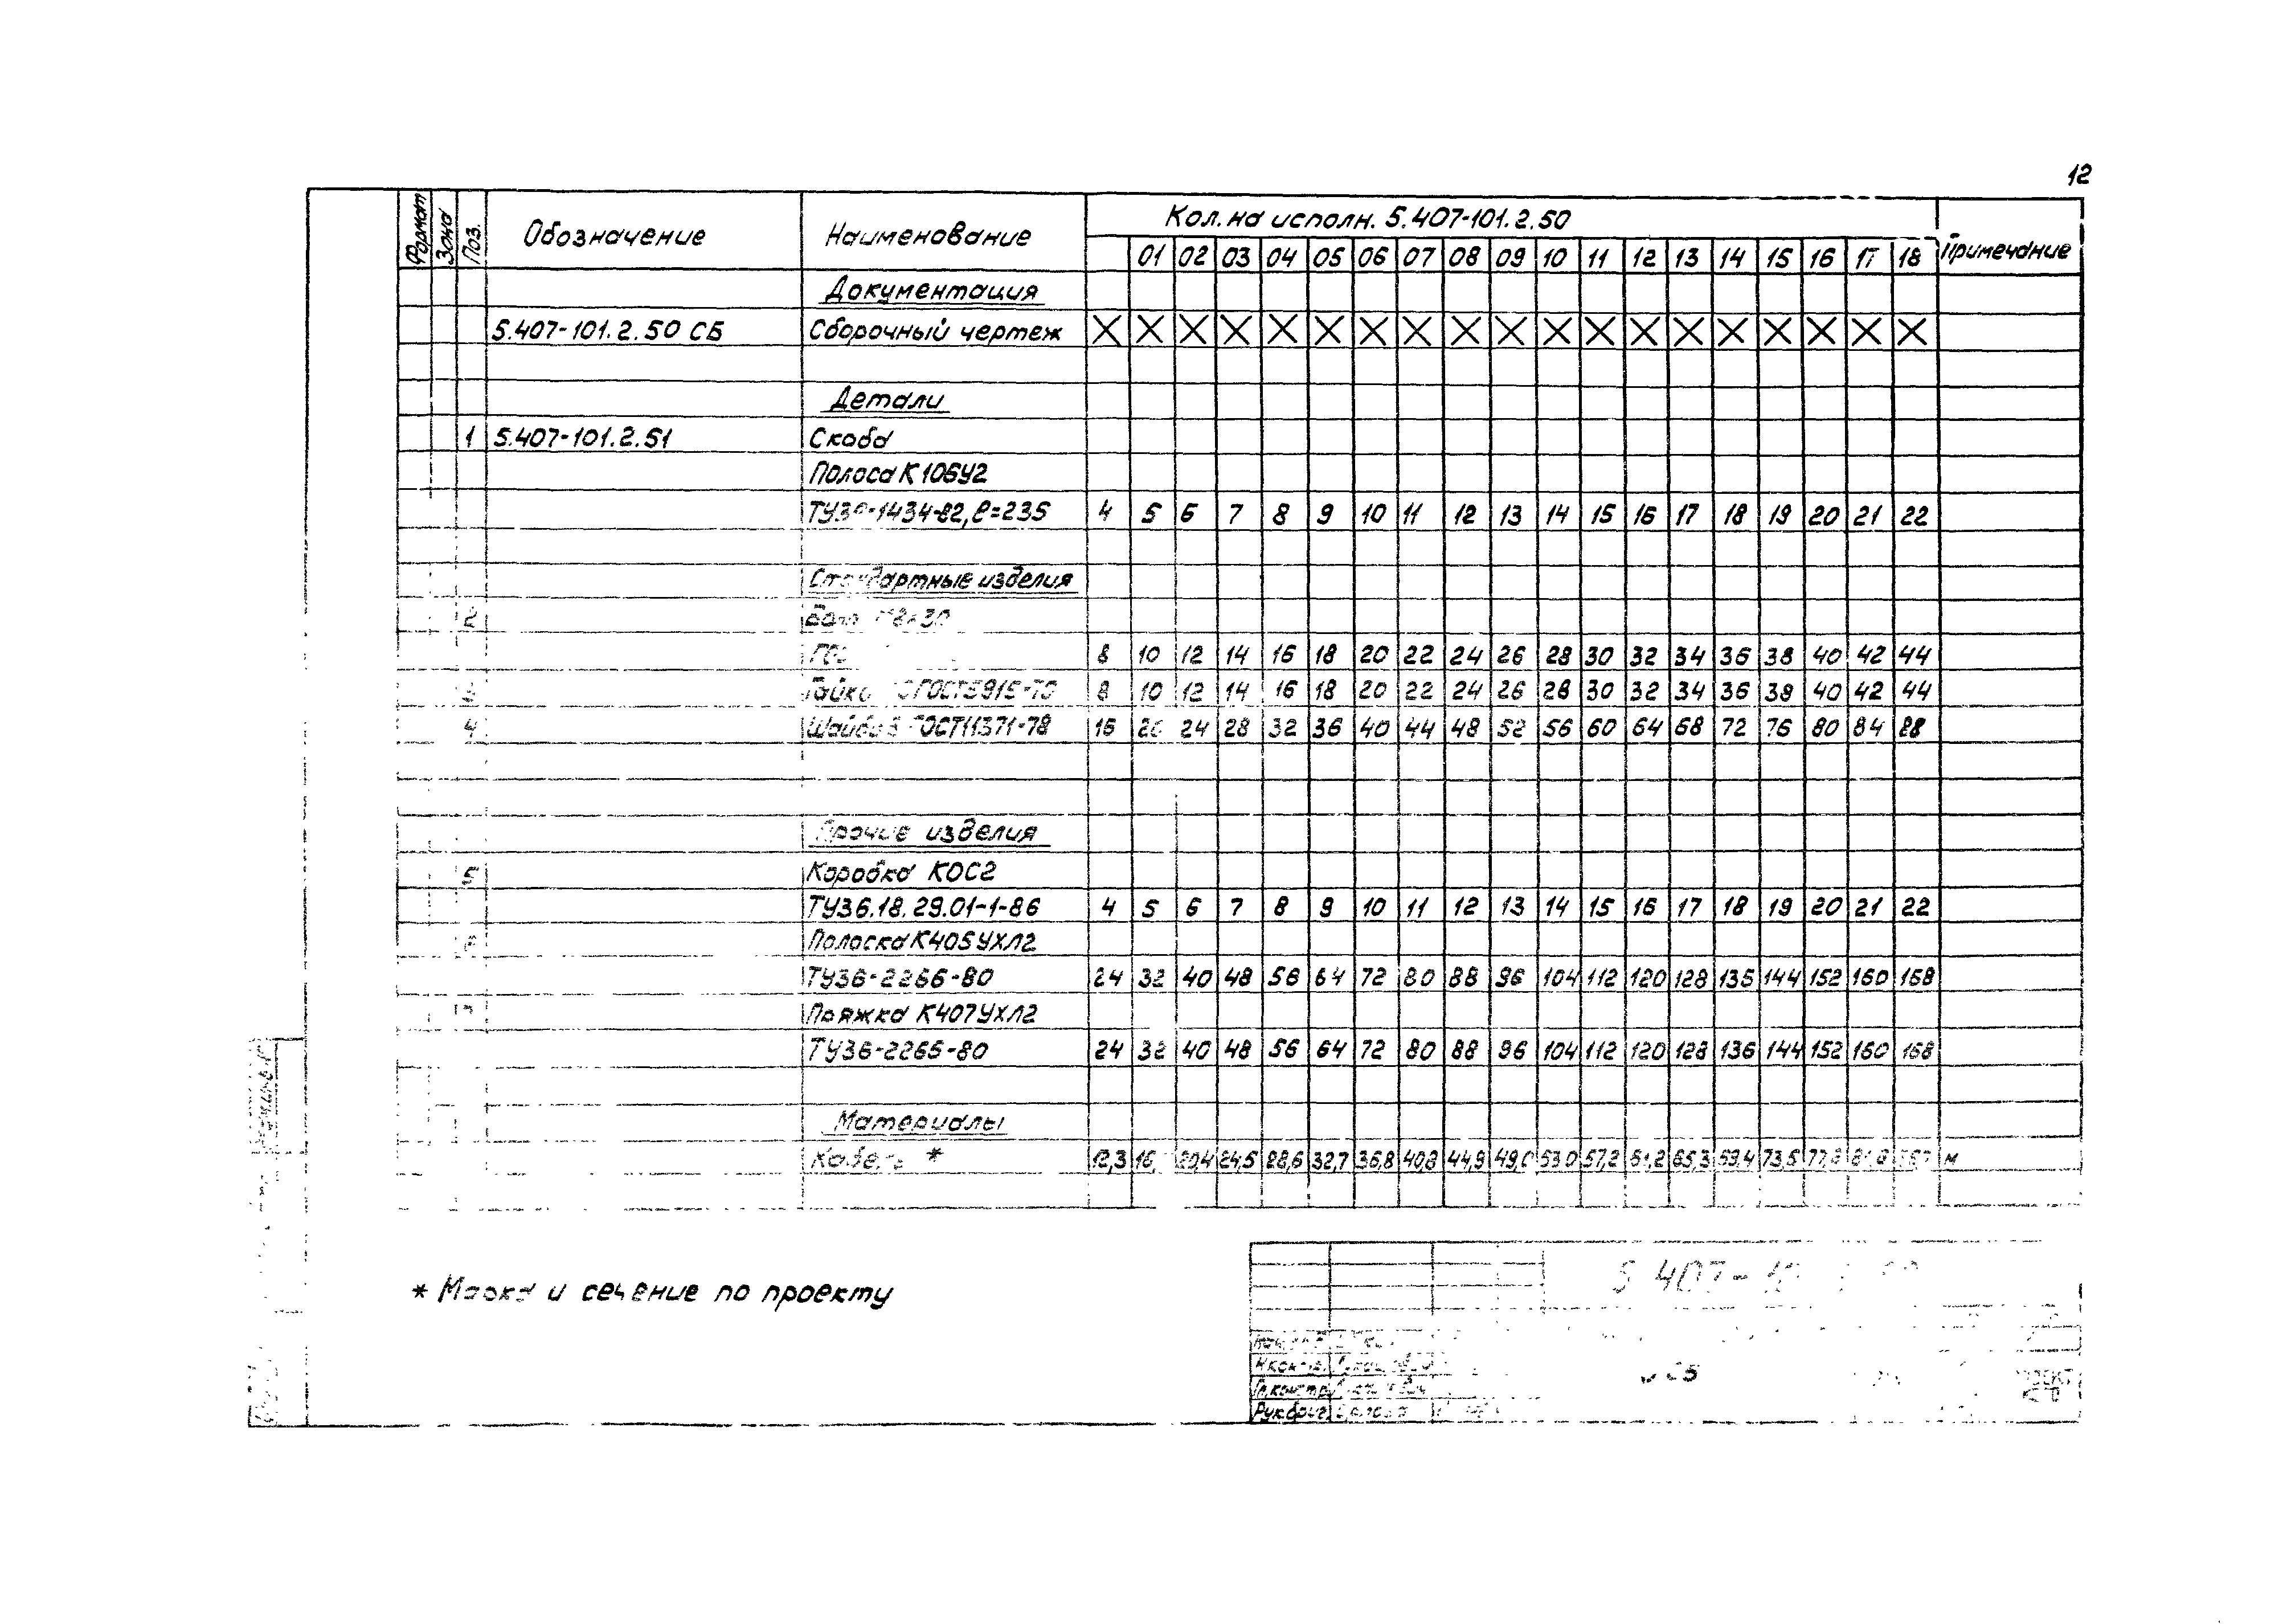 12
Формат Зона Поз. Обозначение Наименование Кол. на исполн. 5.407-101.2.50 Примечание
01 02 03 04 05 06 07 08 09 10 11 12 13 14 15 16 17 18
Документация
5.407-101.2.50 СБ Сборочный чертеж X X X X X X X X X X X X X X X X X X X
Детали
1 5.407-101.2.51 Скоба
Полоса К106У2
ТУ36-1434-82, ℓ=235 4 5 6 7 8 9 10 11 12 13 14 15 16 17 18 19 20 21 22
Стандартные изделия
2 Болт М8×30
8 10 12 14 16 18 20 22 24 26 28 30 32 34 36 38 40 42 44
3 Гайка ГОСТ5915-70 8 10 12 14 16 18 20 22 24 26 28 30 32 34 36 38 40 42 44
4 Шайба 8 ГОСТ11371-78 16 20 24 28 32 36 40 44 48 52 56 60 64 68 72 76 80 84 88
Прочие изделия
5 Коробка КОС2
ТУ36.18.29.01-1-86 4 5 6 7 8 9 10 11 12 13 14 15 16 17 18 19 20 21 22
6 Полоска К405УХЛ2
ТУ36-2266-80 24 32 40 48 56 64 72 80 88 96 104 112 120 128 136 144 152 160 168
7 Пряжка К407УХЛ2
ТУ36-2265-80 24 32 40 48 56 64 72 80 88 96 104 112 120 128 136 144 152 160 168
Материалы
Кабель * 12,3 20,4 24,5 28,6 32,7 36,8 40,8 44,9 49,0 53,0 57,2 61,2 65,3 69,4 73,5 м
* Марка и сечение по проекту
5.407-
Н.контр.
Гл.констр.
Рук.бриг.